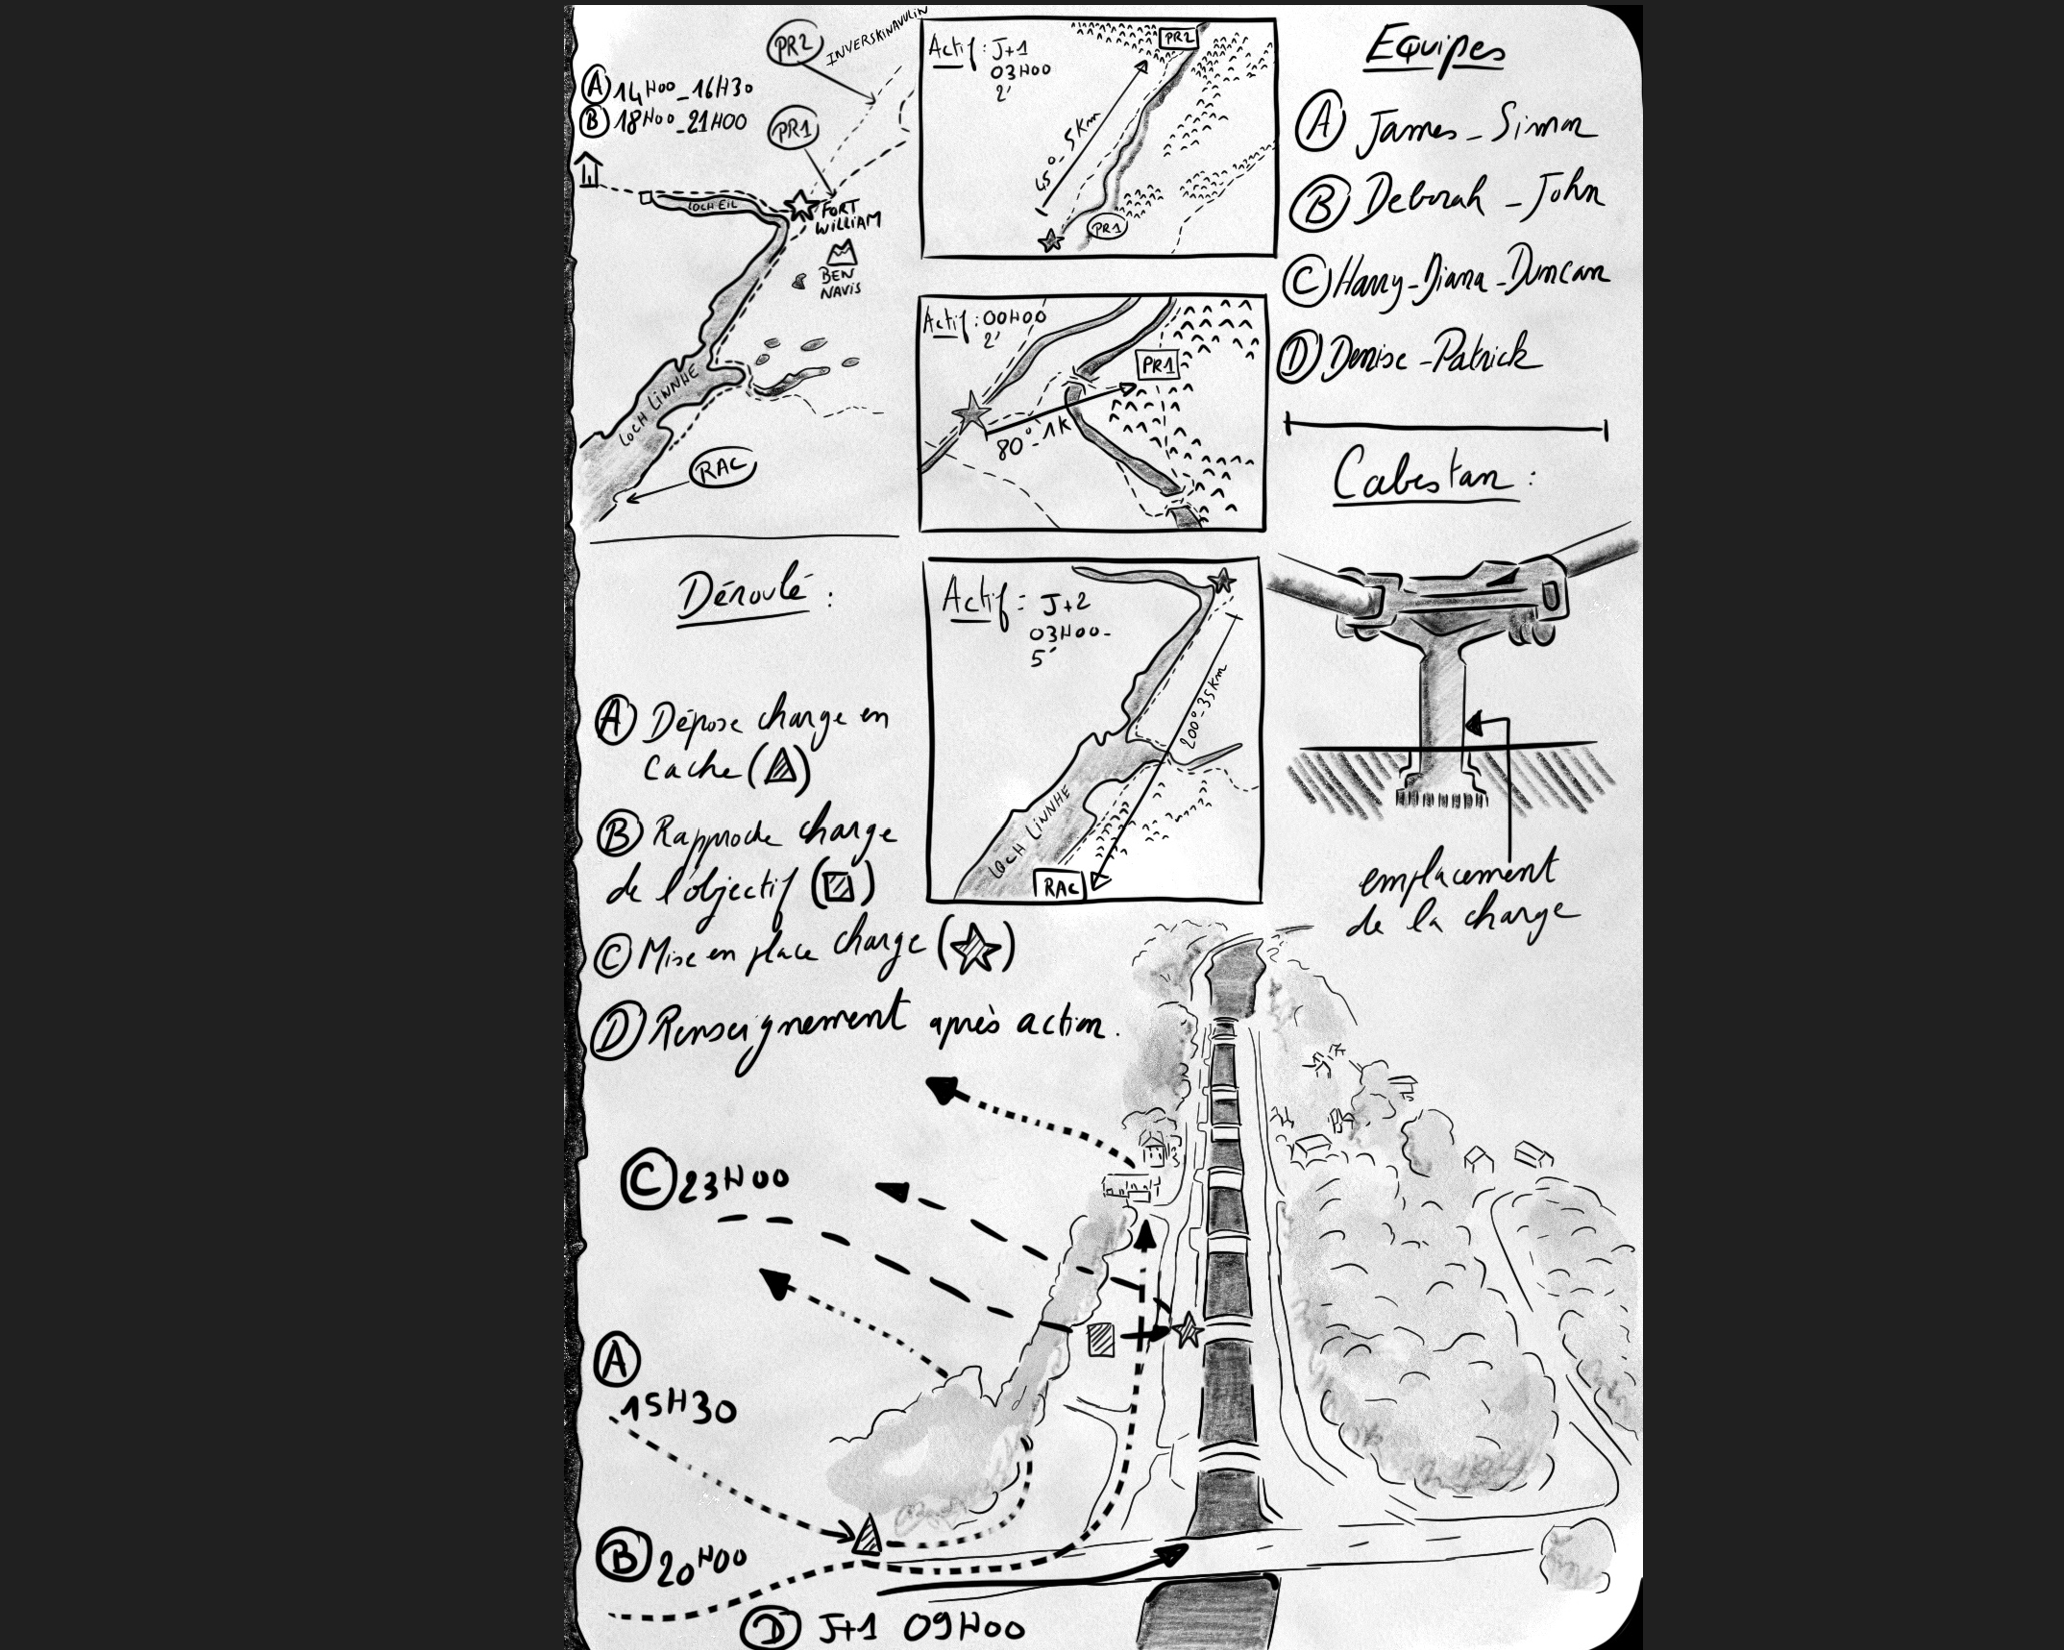 PR2
INVERSKINAVULIN
A 14H00_16H30
B 18H00_21H00
PR1
LOCH EIL
FORT
WILLIAM
BEN
NAVIS
LOCH LINNHE
RAC
Actif : J+1
03H00
2'
PR2
45°- 5Km
PR1
Actif : 00H00
2'
PR1
80°-1K
Actif : J+2
03H00-
5'
200°-35Km
LOCH LINNHE
RAC
Equipes
A James - Simon
B Deborah - John
C Harry - Diana - Duncan
D Denise - Patrick
Cabestan :
emplacement
de la charge
Déroulé :
A Dépose charge en
cache ( )
B Rapproche charge
de l'objectif ( )
C Mise en place charge ( )
D Renseignement après action.
C 23H00
A
15H30
B 20H00
D J+1 09H00